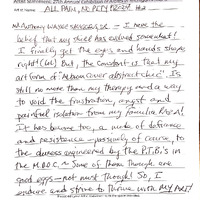 27th Annual Exhibition of
ALL PAIN, NO PITY PARTY!
Anthony
- I have the
belief that my skill has evolved somewhat!
I finally get the eyes and hands shapes
right (lol) But, the constant is that my
art form of "Album cover abstractchic". Is
still no more than my therapy and a way
to void the frustration, angst and
painful isolation from my familia RAZA!
It has become too, a mode of defiance
and resistance - passively of course, to
the duress engineered by the P.T.B.'s in
the M.D.O.C. ~ Some of them though are
good eggs - not much though! So, I
endure and strive to thrive with MY ART!